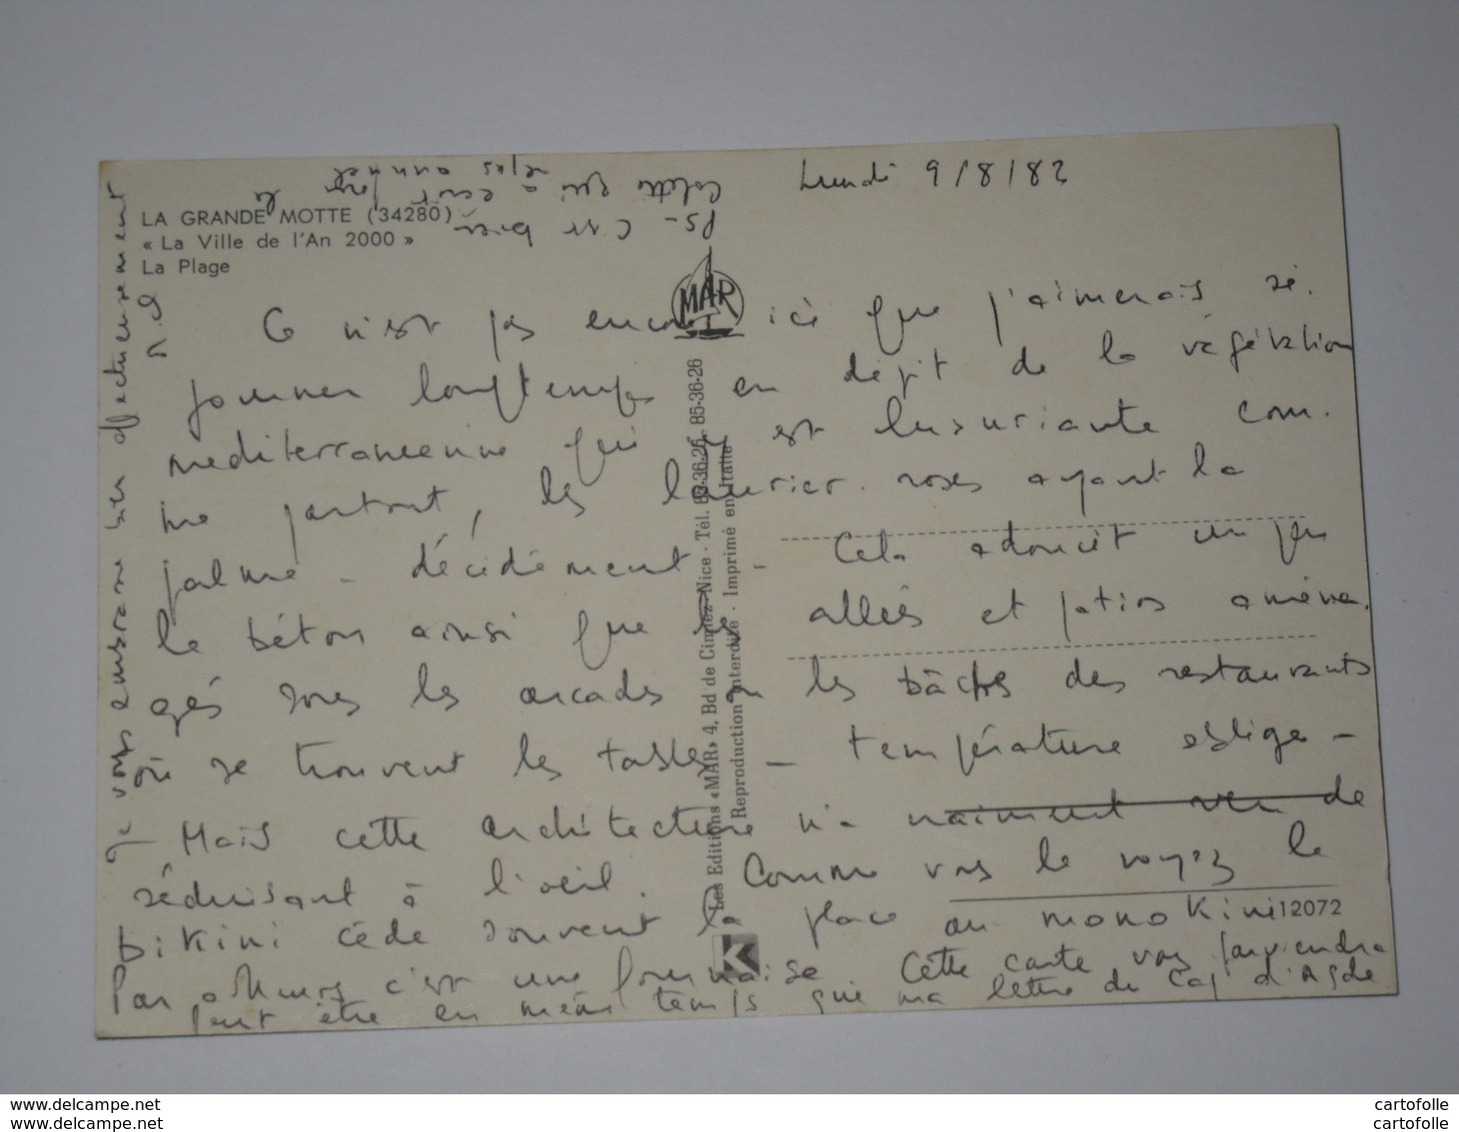 Lundi 9/8/82
PS - C'est bien
Colette qui
a écrit pour le
repas annuel
LA GRANDE MOTTE (34280)
« La Ville de l'An 2000 »
La Plage
MAR
Ce n'est pas encore ici que j'aimerais sé.
journer longtemps en dépit de la végétation
mediterraneenne qui y est luxuriante com.
me partout, les lauriers.roses ayant la
palme - décidément - Cela adoucit un peu
le béton ainsi que les allées et patios aména.
gés sous les arcades ou les bâches des restaurants
où se trouvent les tables - température oblige -
Mais cette architecture n'a vraiment rien de
séduisant à l'oeil. Comme vous le voyez le
bikini cède souvent la place au monokini
Par ailleurs c'est une fournaise Cette carte vous parviendra
peut être en même temps que ma lettre du Cap d'Agde
Je vous embrasse bien affectueusement
Les Editions «MAR» 4, Bd de Cimiez - Nice - Tél. 85-36-25, 85-36-26
Reproduction interdite - Imprimé en Italie
K
12072
delcampe.net
cartofolle
delcampe.net
cartofolle